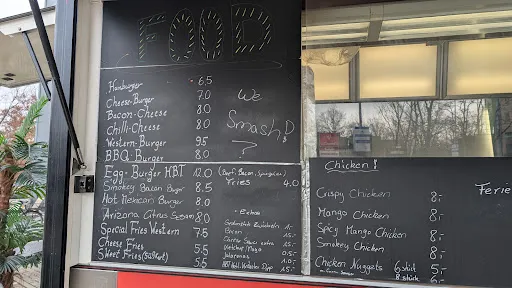 FOOD
Hamburger 6.5
Cheese-Burger 7.0
Bacon-Cheese 8.0
Chilli-Cheese 8.0
Western-Burger 9.5
BBQ-Burger 8.0
We
Smash!
?
Egg-Burger HBI 12.0
Smokey Bacon Burger 8.5
Hot Mexican Burger 9.0
Arizona Citrus 8.0
Special Fries Western 7.5
Cheese Fries 5.5
Sweet Fries 5.5
Fries 4.0
- Extras -
Bacon
Jalapenos
Chicken!
Crispy Chicken 8,-
Mango Chicken 8,-
Spicy Mango Chicken 8,-
Smokey Chicken 8,-
Chicken Nuggets 6 stück 5,-
8 stück 6,-
Ferie